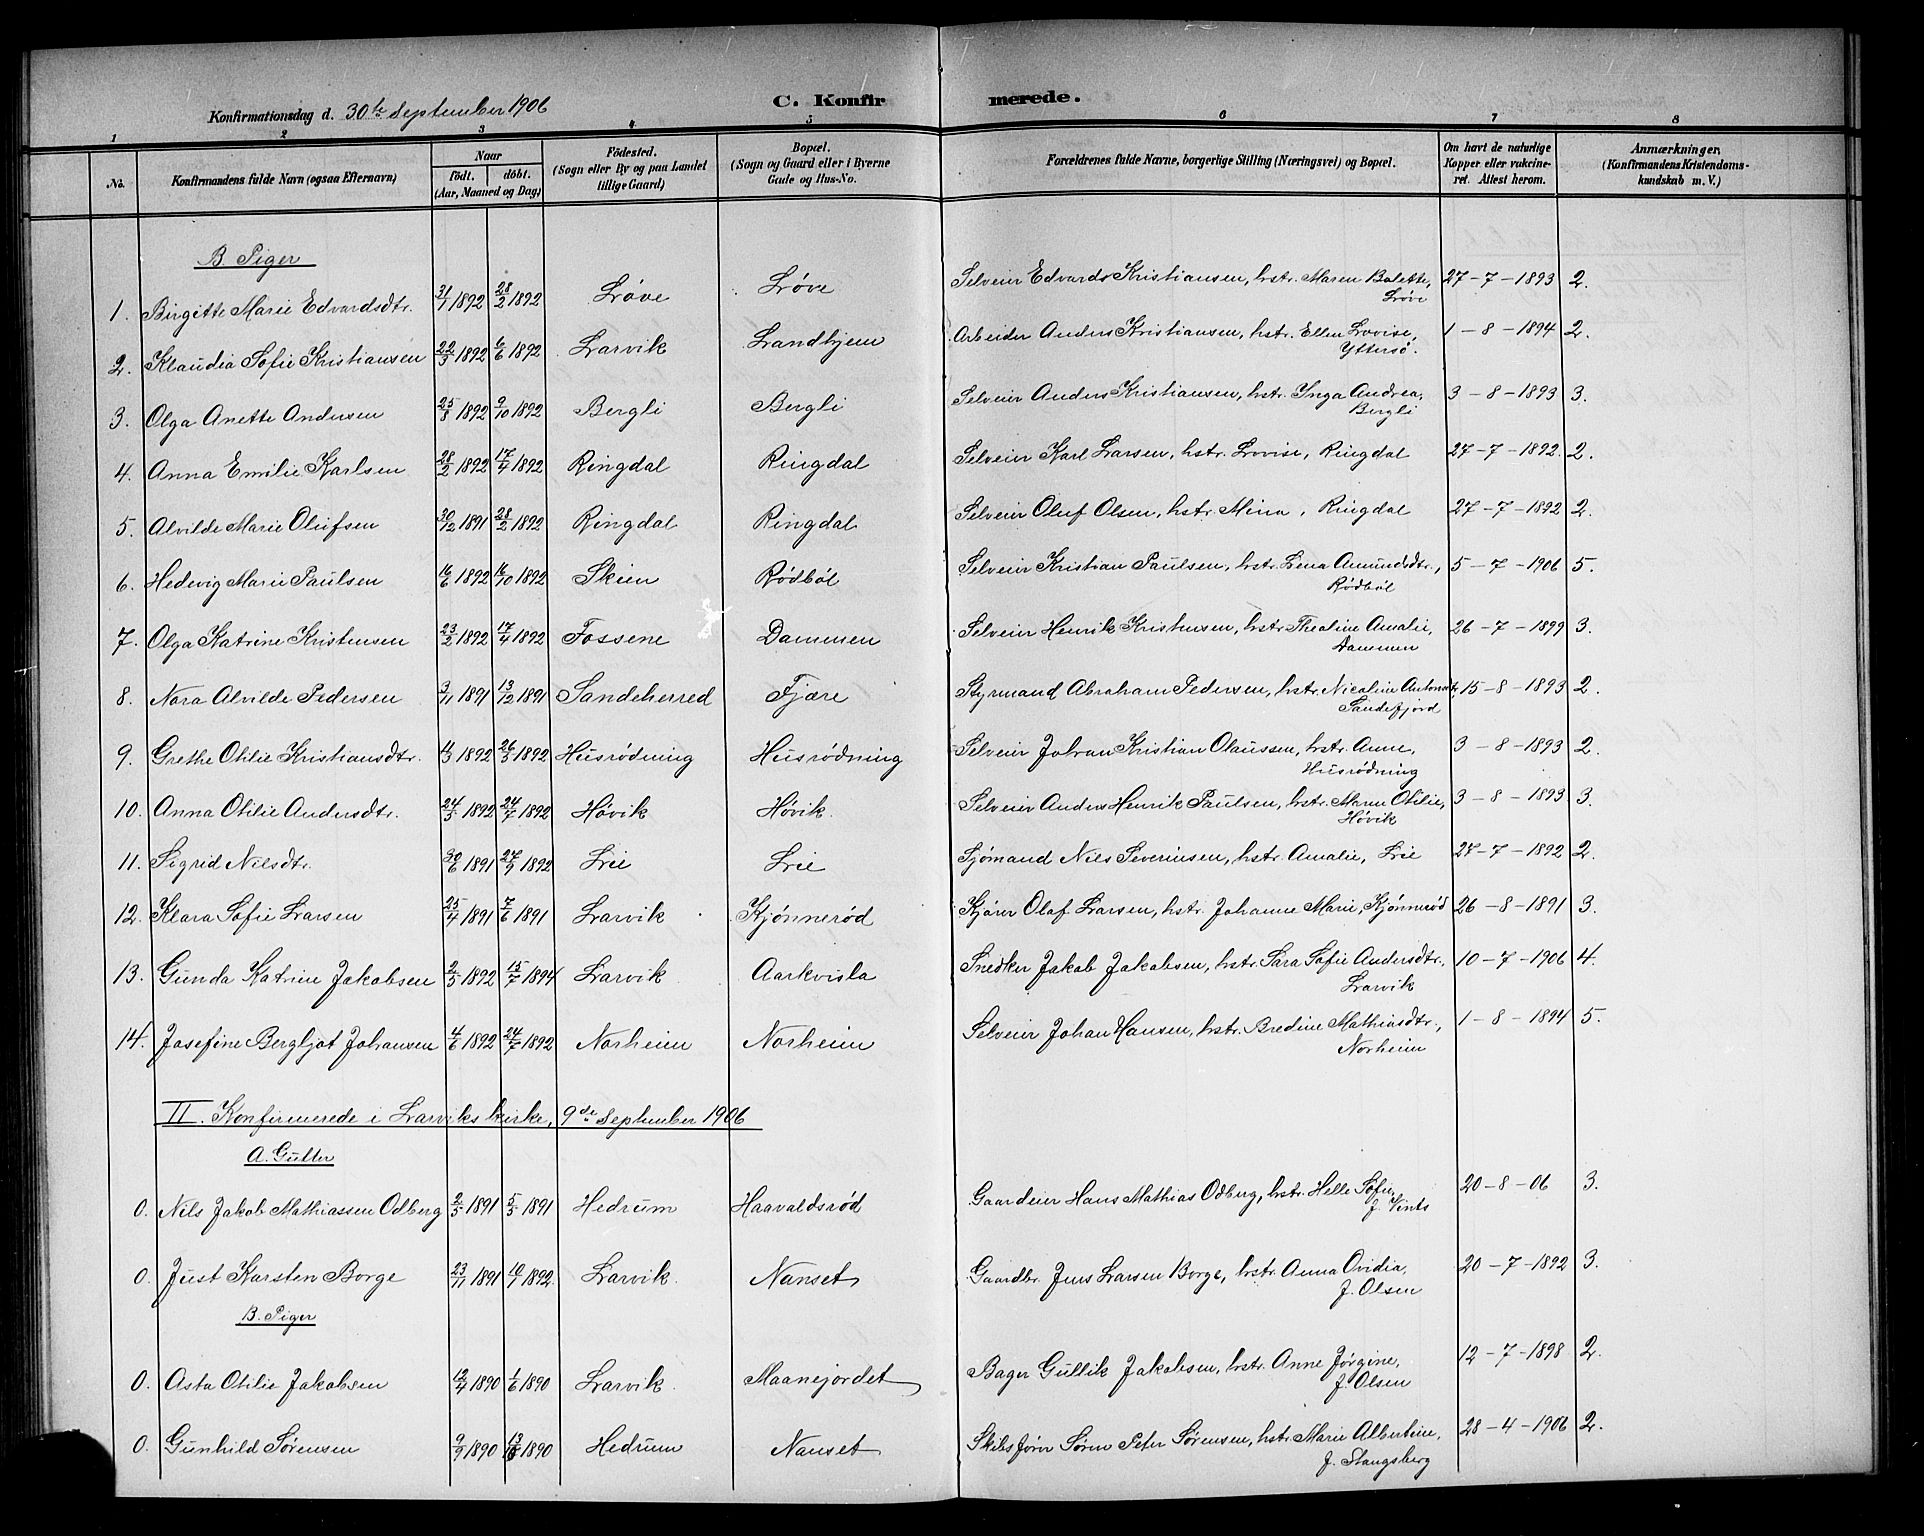 Konfirmationsdag d. 30te September 1906
C. Konfirmerede.
1 2 3 4 5 6 7 8
No.
Konfirmandens fulde Navn (ogsaa Efternavn)
Naar
födt. döbt.
(Aar, Maaned og Dag)
Födested.
(Sogn eller By og paa Landet
tillige Gaard)
Bopæl.
(Sogn og Gaard eller i Byerne
Gade og Hus-No.
Forældrenes fulde Navne, borgerlige Stilling (Næringsvei) og Bopæl.
Om havt de naturlige
Kopper eller vakcine-
ret. Attest herom.
Anmærkninger,
(Konfirmandens Kristendoms-
kundskab m. V.)
B. Piger
1. Birgitte Marie Edvardsdtr. 31/1 1892 28/2 1892 Løve Løve Selveier Edvard Kristiansen, hstr. Maren Bolette, 27-7-1893 2.
Løve
2. Klaudia Sofie Kristiansen 22/3 1892 6/6 1892 Larvik Landhjem Arbeider Anders Kristiansen, hstr. Ellen Lovise, 1-8-1894 2.
Yttersö.
3. Olga Anette Andersen 25/8 1892 9/10 1892 Bergli Bergli Selveier Anders Kristiansen, hstr. Ynga Andrea, 3-8-1893 3.
Bergli
4. Anna Emilie Karlsen 28/2 1892 17/4 1892 Ringdal Ringdal Selveier Karl Larsen, hstr. Lovise, Ringdal 27-7-1892. 2.
5. Alvilde Marie Olufsen 30/12 1891 28/2 1892 Ringdal Ringdal Selveier Oluf Olsen, hstr. Mina, Ringdal 27-7-1892 2.
6. Hedevig Marie Paulsen 16/6 1892 16/10 1892 Skien Rödböl Selveier Kristian Paulsen, hstr. Lena Amundsdtr., 5-7-1906 5.
Rödböl
7. Olga Katrine Kristensen 23/2 1892 17/4 1892 Fossene Dammen Selveier Henrik Kristensen, hstr. Thealine Amalie, 26-7-1899 3.
Dammen
8. Nora Alvilde Pedersen 3/11 1891 13/12 1891 Sandeherred Fjære Styrmand Abraham Pedersen, hstr. Nicoline Antonsdtr, 15-8-1893 2.
Sandefjord
9. Grethe Otilie Kristiansdtr. 4/3 1892 26/5 1892 Husrödning Husrödning Selveier Johan Kristian Olaussen, hstr. Anne, 3-8-1893 2.
Husrödning
10. Anna Otilie Andersdtr. 24/5 1892 24/7 1892 Hövik Hövik. Selveier Anders Henrik Paulsen, hstr. Maren Otilie, 3-8-1893 3.
Hövik
11. Sigrid Nilsdtr. 30/6 1891 27/9 1892 Lie Lie Sjömand Nils Severinsen, hstr. Amalie, Lie 27-7-1892 2.
12. Klara Sofie Larsen 25/4 1891 7/6 1891 Larvik Kjönneröd Kjörer Olaf Larsen, hstr. Johanne Marie, Kjönneröd 26-8-1891 3.
13. Gunda Katrine Jakobsen 2/5 1892 15/7 1894 Larvik Aarkvisla Snedker Jakob Jakobsen, hstr. Sara Sofie Andersdtr., 10-7-1906 4.
Larvik
14. Josefine Bergljot Johansen 4/6 1892 24/7 1892 Norheim Norheim Selveier Johan Hansen, hstr. Bredine Mathiasdtr., 1-8-1894 5.
Norheim
II. Konfirmerede i Larviks kirke, 9de September 1906
A. Gutter
0. Nils Jakob Mathiassen Odberg 2/3 1891 5/5 1891 Hedrum Haavaldsröd Gaardeier Hans Mathias Odberg, hstr. Helle Sofie, 20-8-06 3.
f. Vints
0. Just Karsten Borge 23/11 1891 10/1 1892 Larvik. Nanset Gaardbr. Jens Larsen Borge, hstr. Anna Ovidia, 20-7-1892 3.
f. Olsen
B. Piger
0. Asta Otilie Jakobsen 12/4 1890 1/6 1890 Larvik. Maanejordet Bager Gullik Jakobsen, hstr. Anne Jörgine, 12-7-1898 2.
f. Olsen
0. Gunhild Sörensen 9/9 1890 1890 Hedrum Nanset Skibsförer Sören Peter Sörensen, hstr. Marie Albertine, 28-4-1906 2.
f. Stangsberg